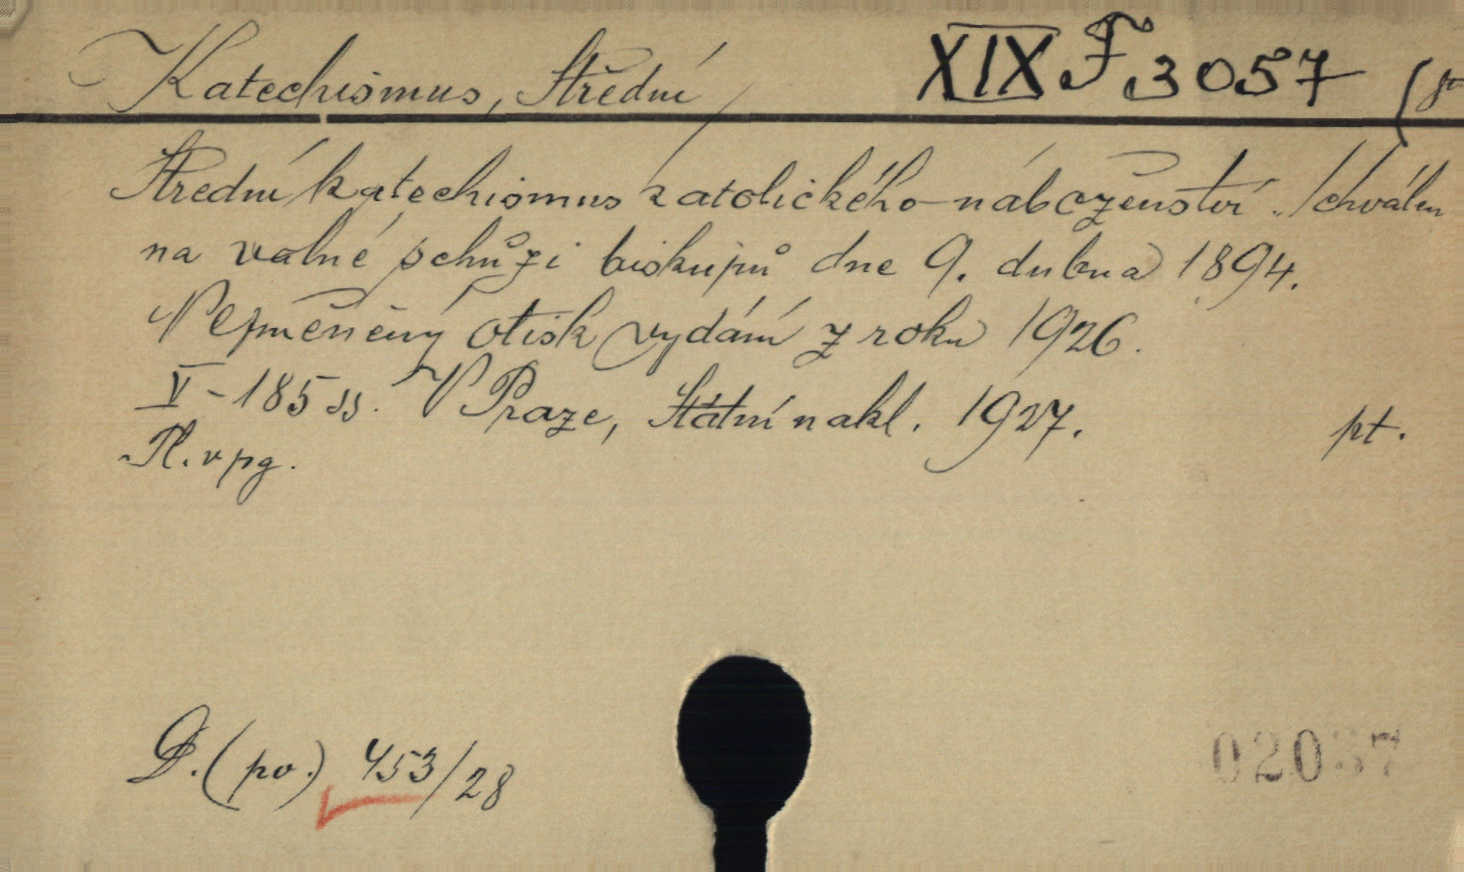 Katechismus, Střední XIX F 3057
Střední katechismus katolického náboženství. Schválen
na valné schůzi biskupů dne 9. dubna 1894.
Nezměněný otisk vydání z roku 1926.
V-185 ss. V Praze, Státní nakl. 1927. pt.
Pl. v pg.
D. (po.) 453/28